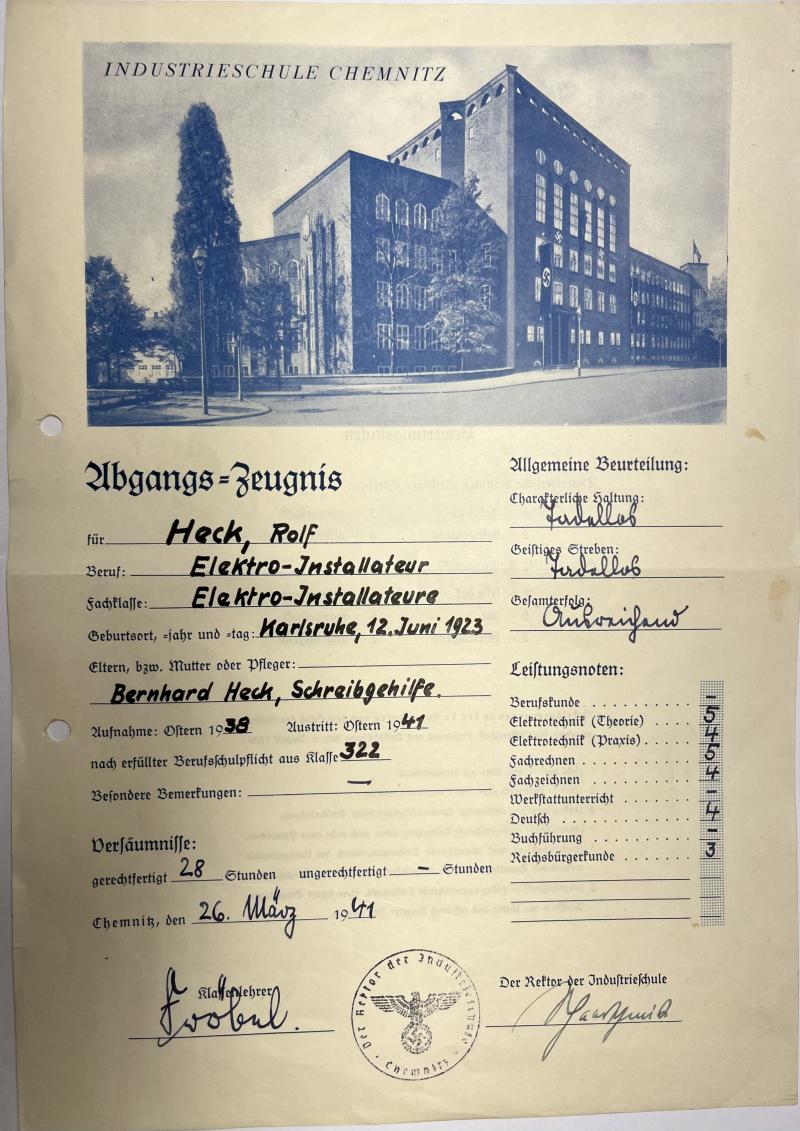 INDUSTRIESCHULE CHEMNITZ
Abgangs-Zeugnis
für Heck, Rolf
Beruf: Elektro-Installateur
Fachklasse: Elektro-Installateure
Geburtsort, -jahr und -tag: Karlsruhe, 12. Juni 1923
Eltern, bzw. Mutter oder Pfleger:
Bernhard Heck, Schreibgehilfe.
Aufnahme: Ostern 1938 Austritt: Ostern 1941
nach erfüllter Berufsschulpflicht aus Klasse 322
Besondere Bemerkungen: —
Versäumnisse:
gerechtfertigt 28 Stunden ungerechtfertigt - Stunden
Chemnitz, den 26. März 1941
Allgemeine Beurteilung:
Charakterliche Haltung:
Tadellos
Geistiges Streben:
Tadellos
Gesamterfolg:
Ausreichend
Leistungsnoten:
Berufskunde . . . . . . . . . . -
Elektrotechnik (Theorie) . . . . 5
Elektrotechnik (Praxis) . . . . . 4
Fachrechnen . . . . . . . . . . . 5
Fachzeichnen . . . . . . . . . . 4
Werkstattunterricht . . . . . . . -
Deutsch . . . . . . . . . . . . . 4
Buchführung . . . . . . . . . . -
Reichsbürgerkunde . . . . . . . 3
Klassenlehrer
Fröbel.
Der Rektor der Industrieschule
Der Rektor der Industrieschule
Chemnitz